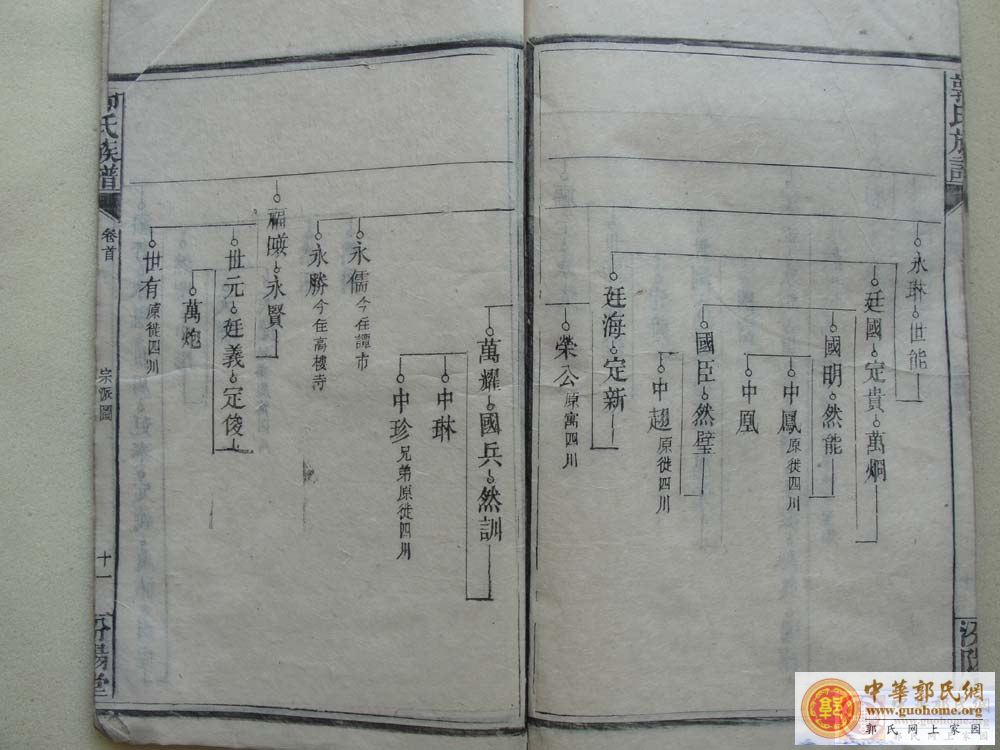 郭氏族譜
永琳 世能
廷國 定貴 萬烱
國明 然能
中鳳 原徙四川
中凰
國臣 然璧
中趨 原徙四川
廷海 定新
榮公 原寓四川
萬耀 國兵 然訓
中琳
中珍 兄弟原徙四川
永儒 今在譚市
永勝 今在高樓寺
永賢
世元 廷義 定俊
萬炮
世有 原徙四川
郭氏族譜
卷首
宗派圖
十一
汾陽堂
中華郭氏網
www.guohome.org
郭氏网上家园